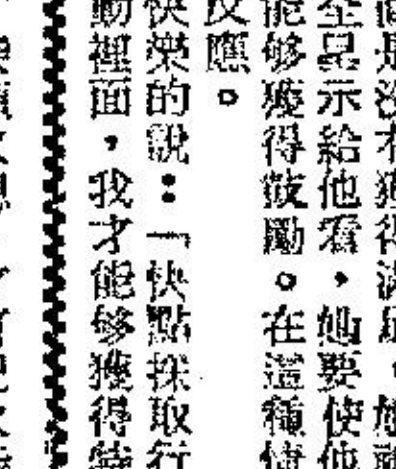 是沒有獲得滿足，她
全呈示給他看，她要使他
能够獲得鼓勵。在這種情
反應。
快樂的說：「快點採取行
動裡面，我才能够獲得特